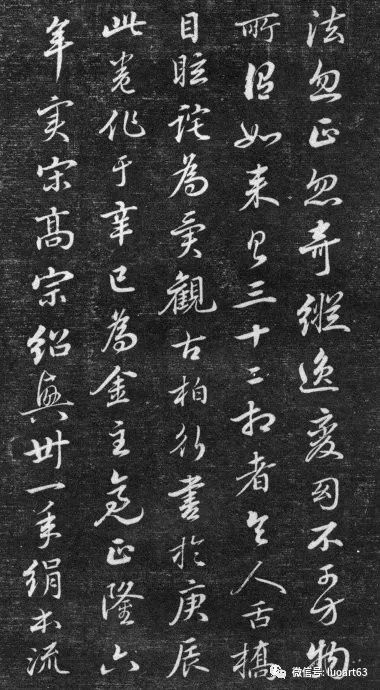 法忽正忽奇縱逸變幻不可方物
所謂如来具三十二相者令人舌撟
目眩詫為異觀古柏行書於庚辰
此卷作于辛巳為金主亮正隆六
年實宋高宗紹興卅一年絹本流
微信号: luoart63